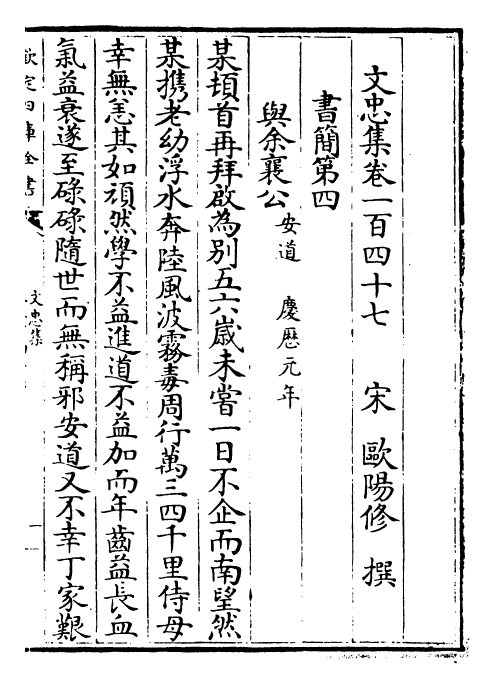 文忠集卷一百四十七　宋　歐陽修　撰
書簡第四
與余襄公安道　慶歷元年
某頓首再拜啟為別五六歲未嘗一日不企而南望然
某攜老幼浮水奔陸風波霧毒周行萬三四千里侍母
幸無恙其如頑然學不益進道不益加而年齒益長血
氣益衰遂至碌碌隨世而無稱邪安道又不幸丁家艱
欽定四庫全書
文忠集
一